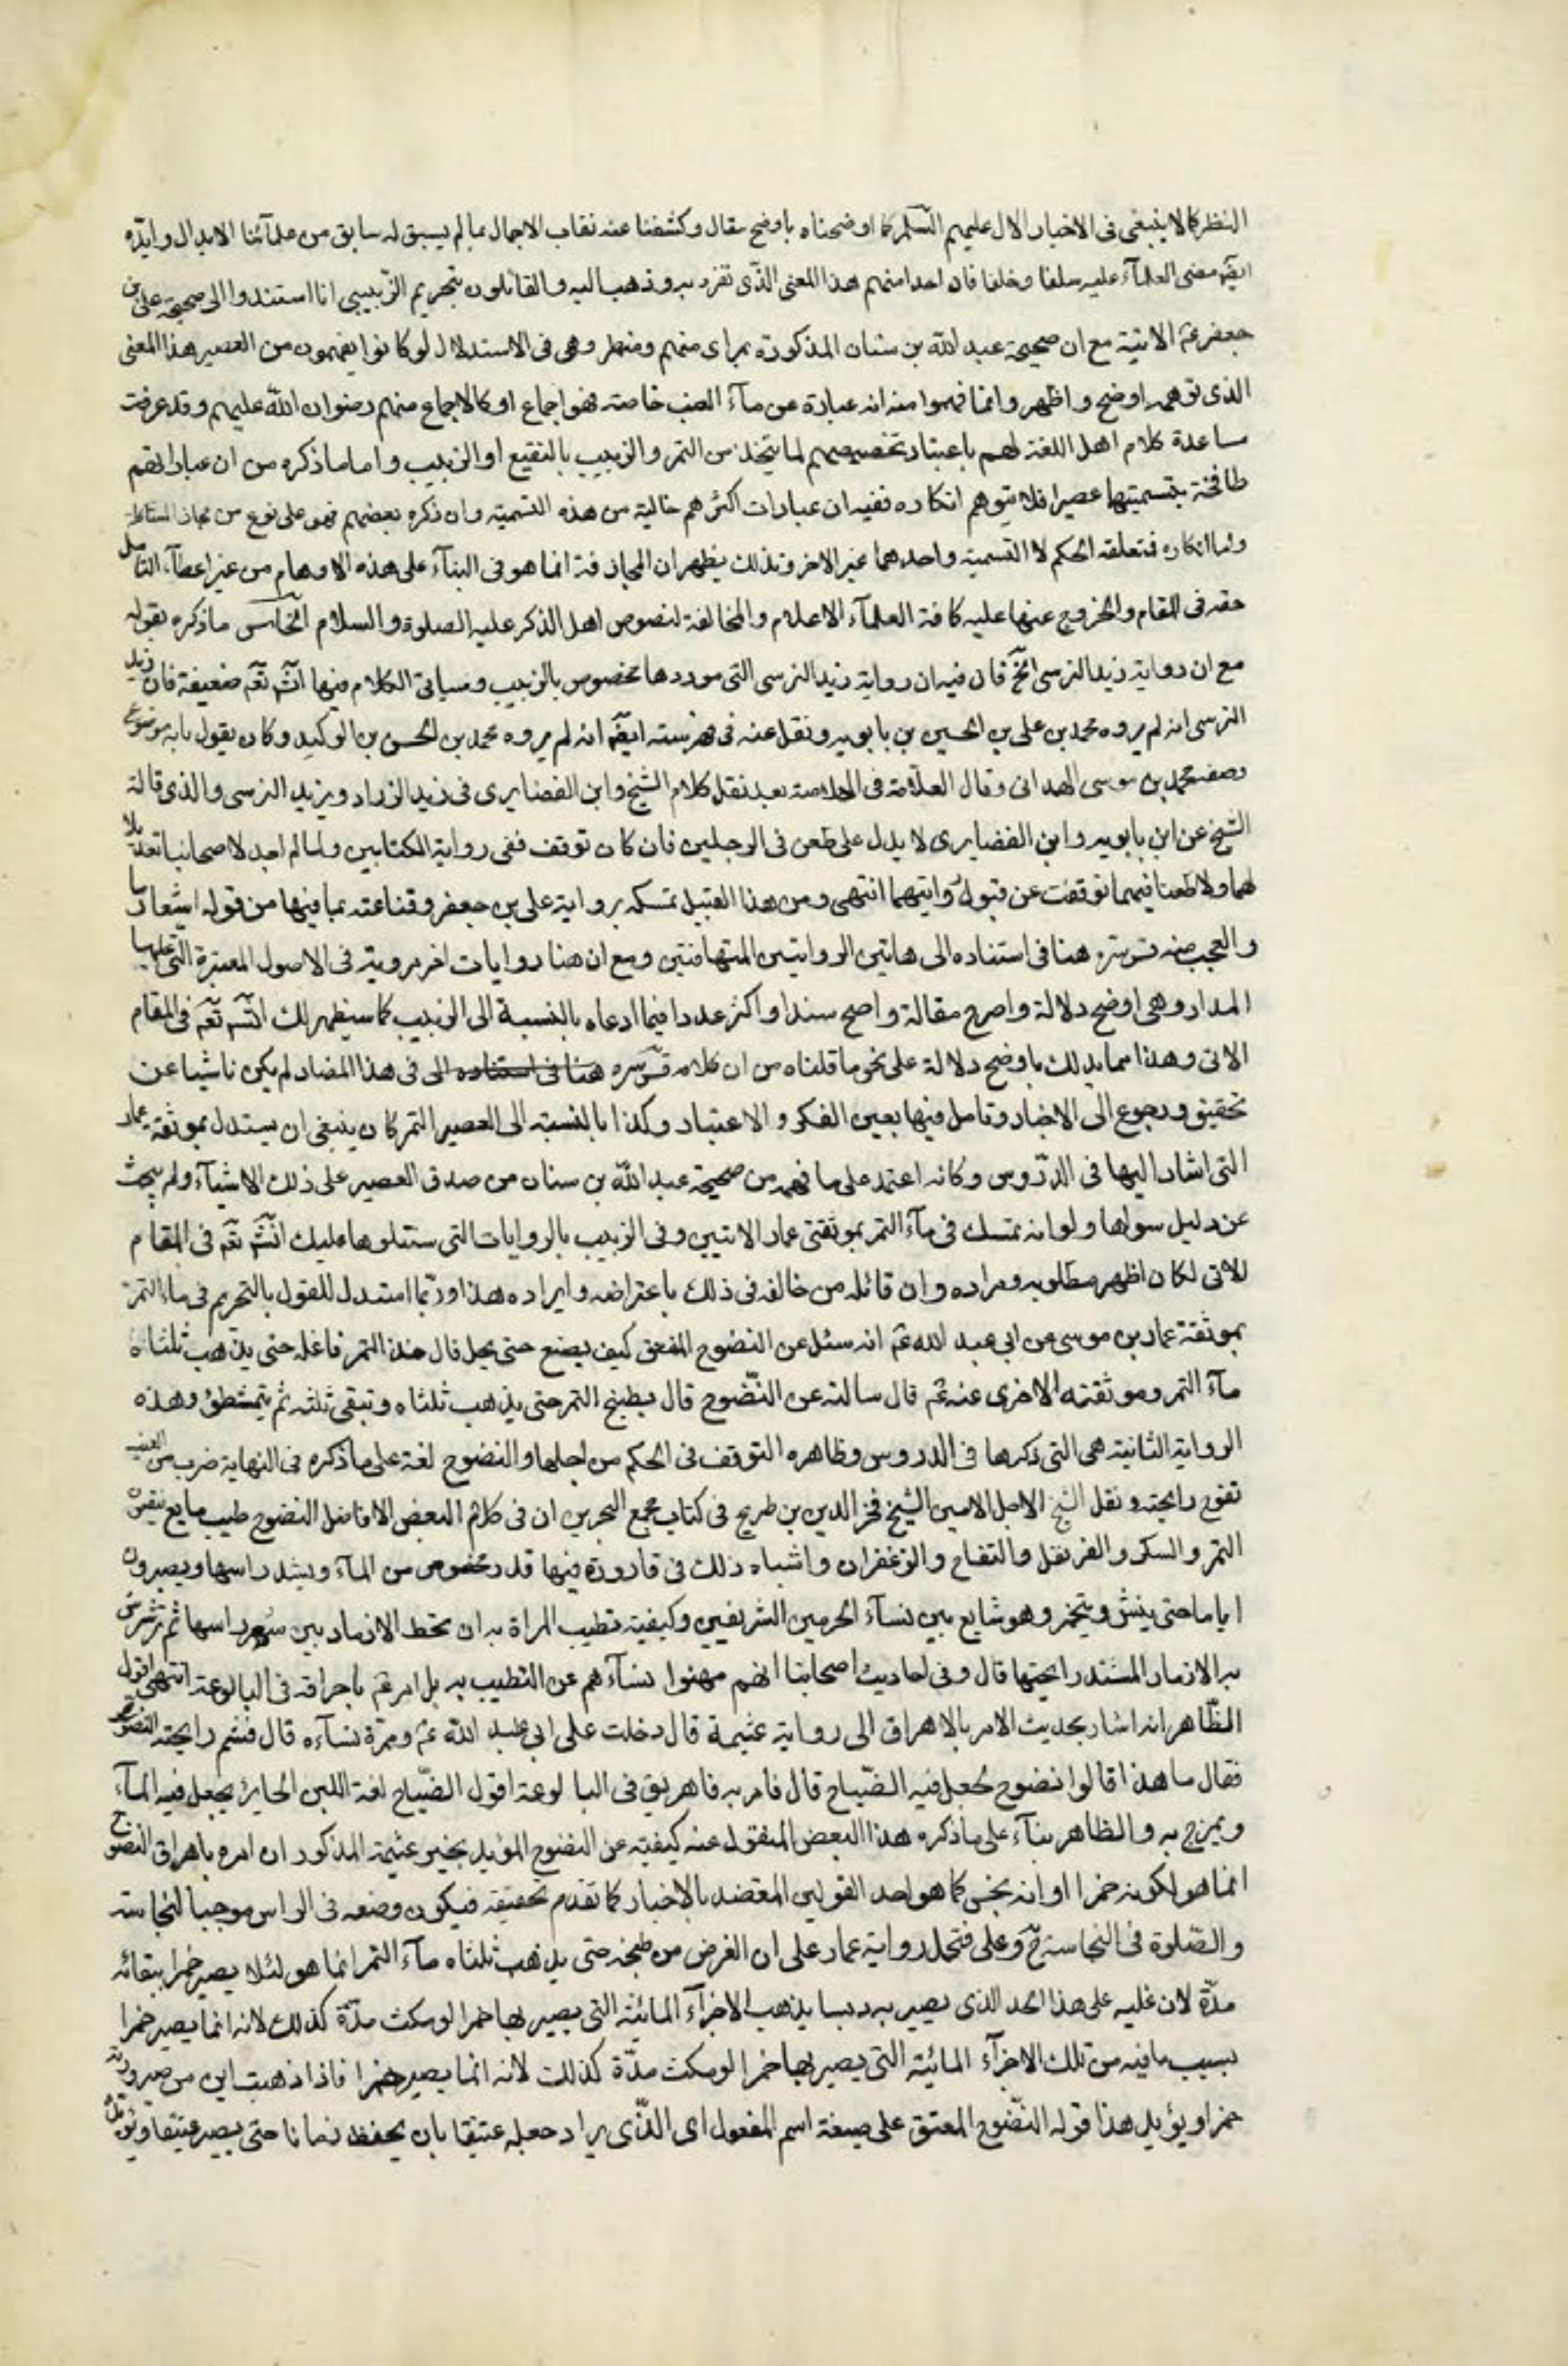 النظر كما لا ينبغى فى الاخبار الال عليهم السلم كما اوضحناه باوضح مقال وكشفنا عنه نقاب الاجمال بما لم يسبق له سابق من علمآئنا الابدال وايده
ايضا مضى العلمآء عليه سلفا وخلفا فان احدا منهم هذا المعنى الذى تفرد به وذهب اليه والقائلون بتحريم الزبيبى انما استندوا الى صحيحة على بن
جعفر عم الاتية مع ان صحيحة عبد الله بن سنان المذكورة بمراى منهم ومنظر وهى فى الاستدلال لو كانوا يفهمون من العصير هذا المعنى
الذى توهمه اوضح واظهر وانما فهموا منه انه عبارة عن مآء العنب خاصة فهو اجماع او كالاجماع منهم رضوان الله عليهم وقد عرفت
مساعدة كلام اهل اللغة لهم باعتبار تخصيصهم لما يتخذ من التمر والزبيب بالنقيع او الزبيب واما ما ذكره من ان عباراتهم
طافحة بتسميتها عصيرا فلا يتوهم انكاره ففيه ان عبارات اكثرهم خالية من هذه التسمية وان ذكره بعضهم فهو على نوع من مجاز
واما انكاره فتعلقه الحكم لا التسمية واحدهما غير الاخر وبذلك يظهر ان المجازفة انما هو فى البنآء على هذه الاوهام من غير اعطآء التامل
حقه فى المقام والخروج عنها عليه كافة العلمآء الاعلام والمخالفة لنصوص اهل الذكر عليه الصلوة والسلام الخامس ما ذكره بقوله
مع ان رواية زيد النرسى الخ فان فيه ان رواية زيد النرسى التى موردها مخصوص بالزبيب وسياتى الكلام فيها انشه تعم ضعيفة فان زيد
النرسى انه لم يروه محمد بن على بن الحسين بن بابويه ونقل عنه فى فهرسته ايضا انه لم يروه محمد بن الحسن بن الوليد وكان يقول بانه موضوع
وضعه محمد بن موسى الهمدانى وقال العلامة فى الخلاصة بعد نقل كلام الشيخ وابن الغضايرى فى زيد الزراد ويزيد النرسى والذى قاله
الشيخ عن ابن بابويه وابن الغضايرى لا يدل على طعن فى الرجلين فان كان توقف ففى رواية الكتابين ولما لم اجد لاصحابنا تعديلا
لهما ولا طعنا فيهما توقفت عن قبول روايتهما انتهى ومن هذا القبيل تمسكه برواية على بن جعفر وقناعته بما فيها من قوله اشعار ما
والعجب منه قدس سره هنا فى استناده الى هاتين الروايتين المتهافتين ومع ان هنا روايات اخر مروية فى الاصول المعتبرة التى عليها
المدار وهى اوضح دلالة واصرح مقالة واصح سندا واكثر عددا فيما ادعاه بالنسبة الى الزبيب كما سيظهر لك انشه تعم فى المقام
الاتى وهذا مما يدلك باوضح دلالة على نحو ما قلناه من ان كلامه قدس سره هنا فى استناده الى فى هذا المضمار لم يكن ناشيا عن
تحقيق ورجوع الى الاخبار وتامل فيها بعين الفكر والاعتبار وكذا بالنسبة الى العصير التمر كان ينبغى ان يستدل بموثقة عمار
التى اشار اليها فى الدروس وكانه اعتمد على ما فهمه من صحيحة عبد الله بن سنان من صدق العصير على ذلك الاشيآء ولم يبحث
عن دليل سواها ولو انه تمسك فى مآء التمر بموثقتى عمار الاتيين وفى الزبيب بالروايات التى ستتلوها عليك انشه تعم فى المقام
الاتى لكان اظهر مطلوبه ومراده وان قائله من خالفه فى ذلك باعتراضه وايراده هذا وربما استدل للقول بالتحريم فى ماء التمر
بموثقة عمار بن موسى عن ابى عبد الله عم انه سئل عن النضوح المعتق كيف يصنع حتى يحل قال خذ التمر فاغله حتى يذهب ثلثاه
مآء التمر وموثقته الاخرى عنه عم قال سالته عن النضوح قال يطبخ التمر حتى يذهب ثلثاه وتبقى ثلثه ثم يتمشطن وهذه
الرواية الثانية هى التى ذكرها فى الدروس وظاهره التوقف فى الحكم من اجلها والنضوح لغة على ما ذكره فى النهاية ضرب من الطيب
تفوح رايحته ونقل الشيخ الاجل الامين الشيخ فخر الدين بن طريح فى كتاب مجمع البحرين ان فى كلام البعض الافاضل النضوح طيب مايع ينقعون
التمر والسكر والقرنفل والتفاح والزعفران واشباه ذلك فى قارورة فيها قدر مخصوص من المآء ويشد راسها ويصبرون
اياما حتى ينش ويتخمر وهو شايع بين نسآء الحرمين الشريفين وكيفية تطيب المراة به ان تحط الازهار بين شعر راسها ثم ترشرش
به الازهار المشتد رايحتها قال وفى احاديث اصحابنا انهم نهوا نسآءهم عن التطيب به بل امر عم باهراقه فى البالوعة انتهى اقول
الظاهر انه اشار بحديث الامر بالاهراق الى رواية عثيمة قال دخلت على ابى عبد الله عم وعمرة نسآءه قال فشم رايحة النضوح
فقال ما هذا قالوا نضوح يجعل فيه الضياح قال فامر به فاهريق فى البالوعة اقول الضياح لغة اللبن الخاثر يجعل فيه المآء
ويمزج به والظاهر بنآء على ما ذكره هذا البعض المنقول عنه كيفيته عن النضوح المؤيد بخبر عثيمة المذكور ان امره باهراق النضوح
انما هو لكونه خمرا او انه نجس كما هو احد القولين المعتضد بالاخبار كما تقدم تحقيقه فيكون وضعه فى الراس موجبا لنجاسته
والصلوة فى النجاسة ح وعلى فتحمل رواية عمار على ان الغرض من طبخه حتى يذهب ثلثاه مآء التمر انما هو لئلا يصير خمرا ببقائه
مدة لان غليه على هذا الحد الذى يصير به دبسا يذهب الاجزآء المائية التى يصير بها خمرا لو مكث مدة كذلك لانه انما يصير خمرا
بسبب ما فيه من تلك الاجزآء المائية التى يصير بها خمرا لو مكث مدة كذلك لانه انما يصير خمرا فاذا ذهبت امن من صيرورته
خمرا ويؤيد هذا قوله النضوح المعتق على صيغة اسم المفعول اى الذى يراد جعله عتيقا بان يحفظ زمانا حتى يصير عتيقا